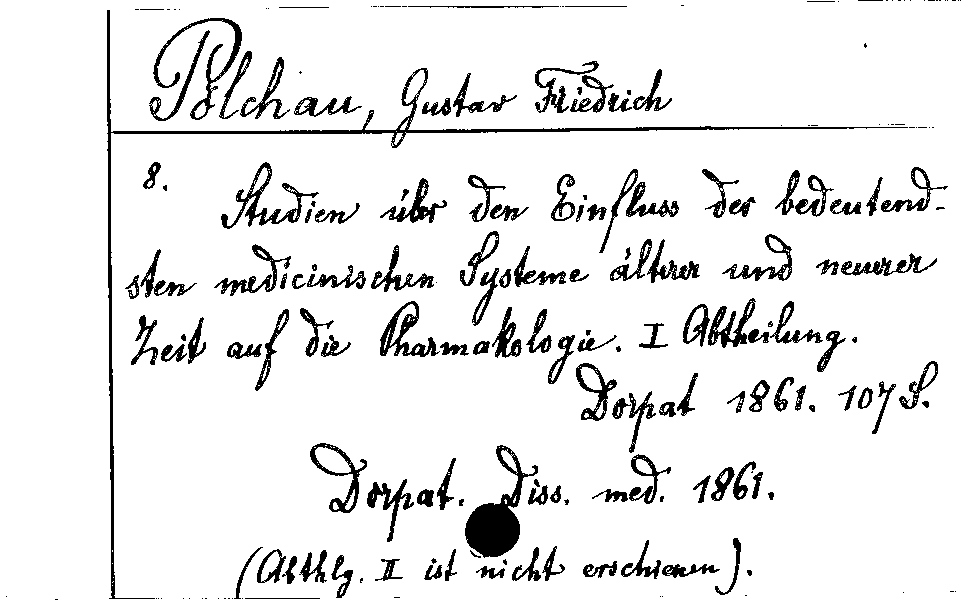 Pölchau, Gustav Friedrich
8. Studien über den Einfluss der bedeutend-
sten medicinischen Systeme älterer und neuerer
Zeit auf die Pharmakologie. I Abtheilung.
Dorpat 1861. 107 S.
Dorpat. Diss. med. 1861.
(Abthlg. II ist nicht erschienen).